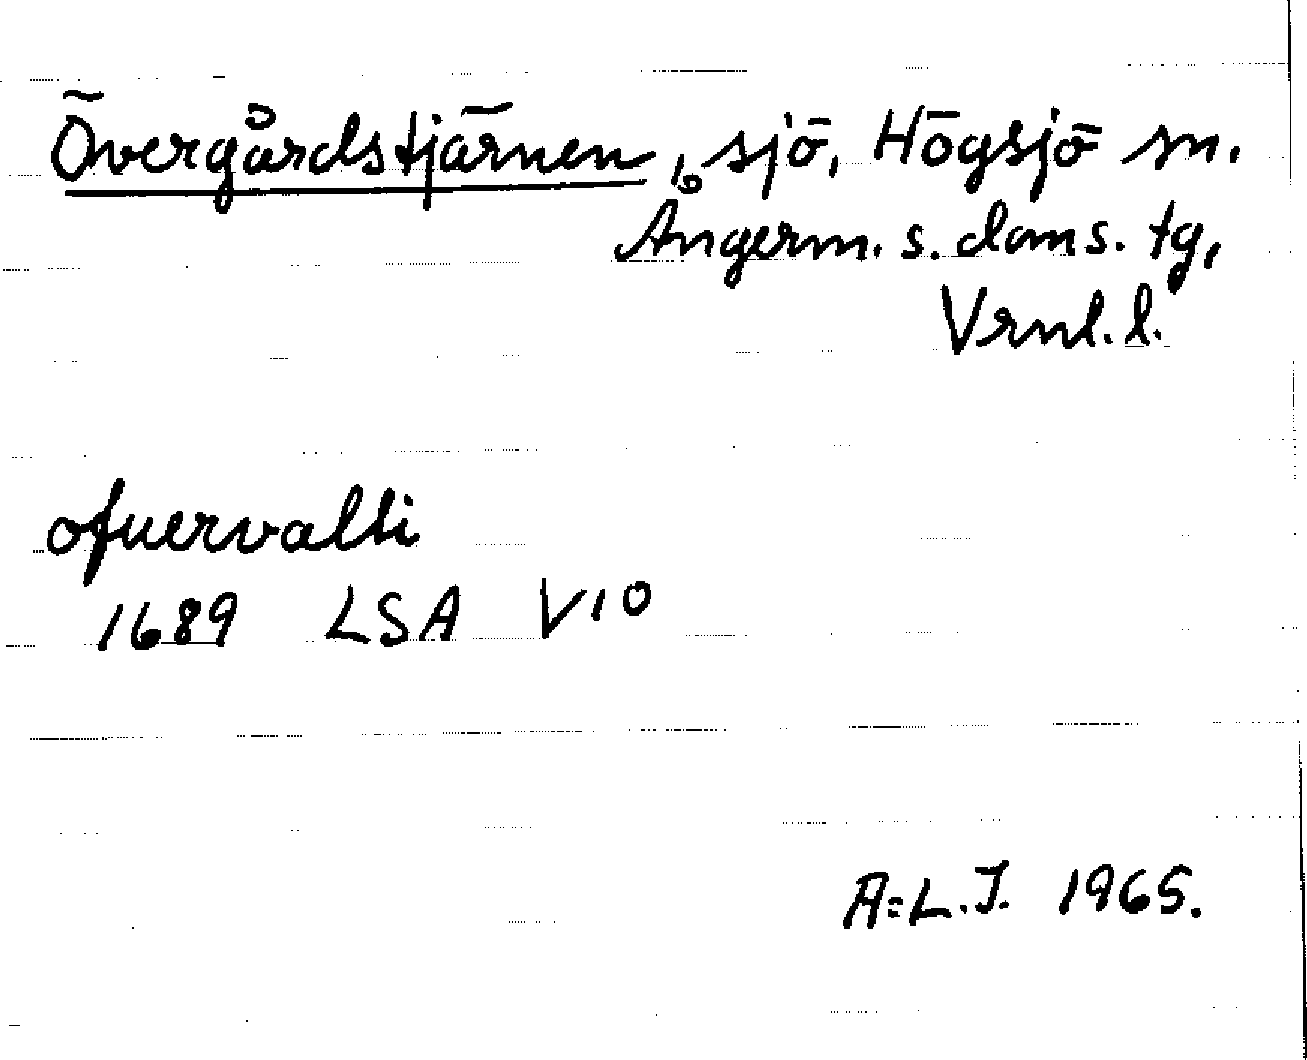 Övergårdstjärnen, 16 sjö, Högsjö sn.
Ångerm. s. doms. tg,
Vrnl. l.
ofuervalli
1689 LSA V10
A=L.J. 1965.